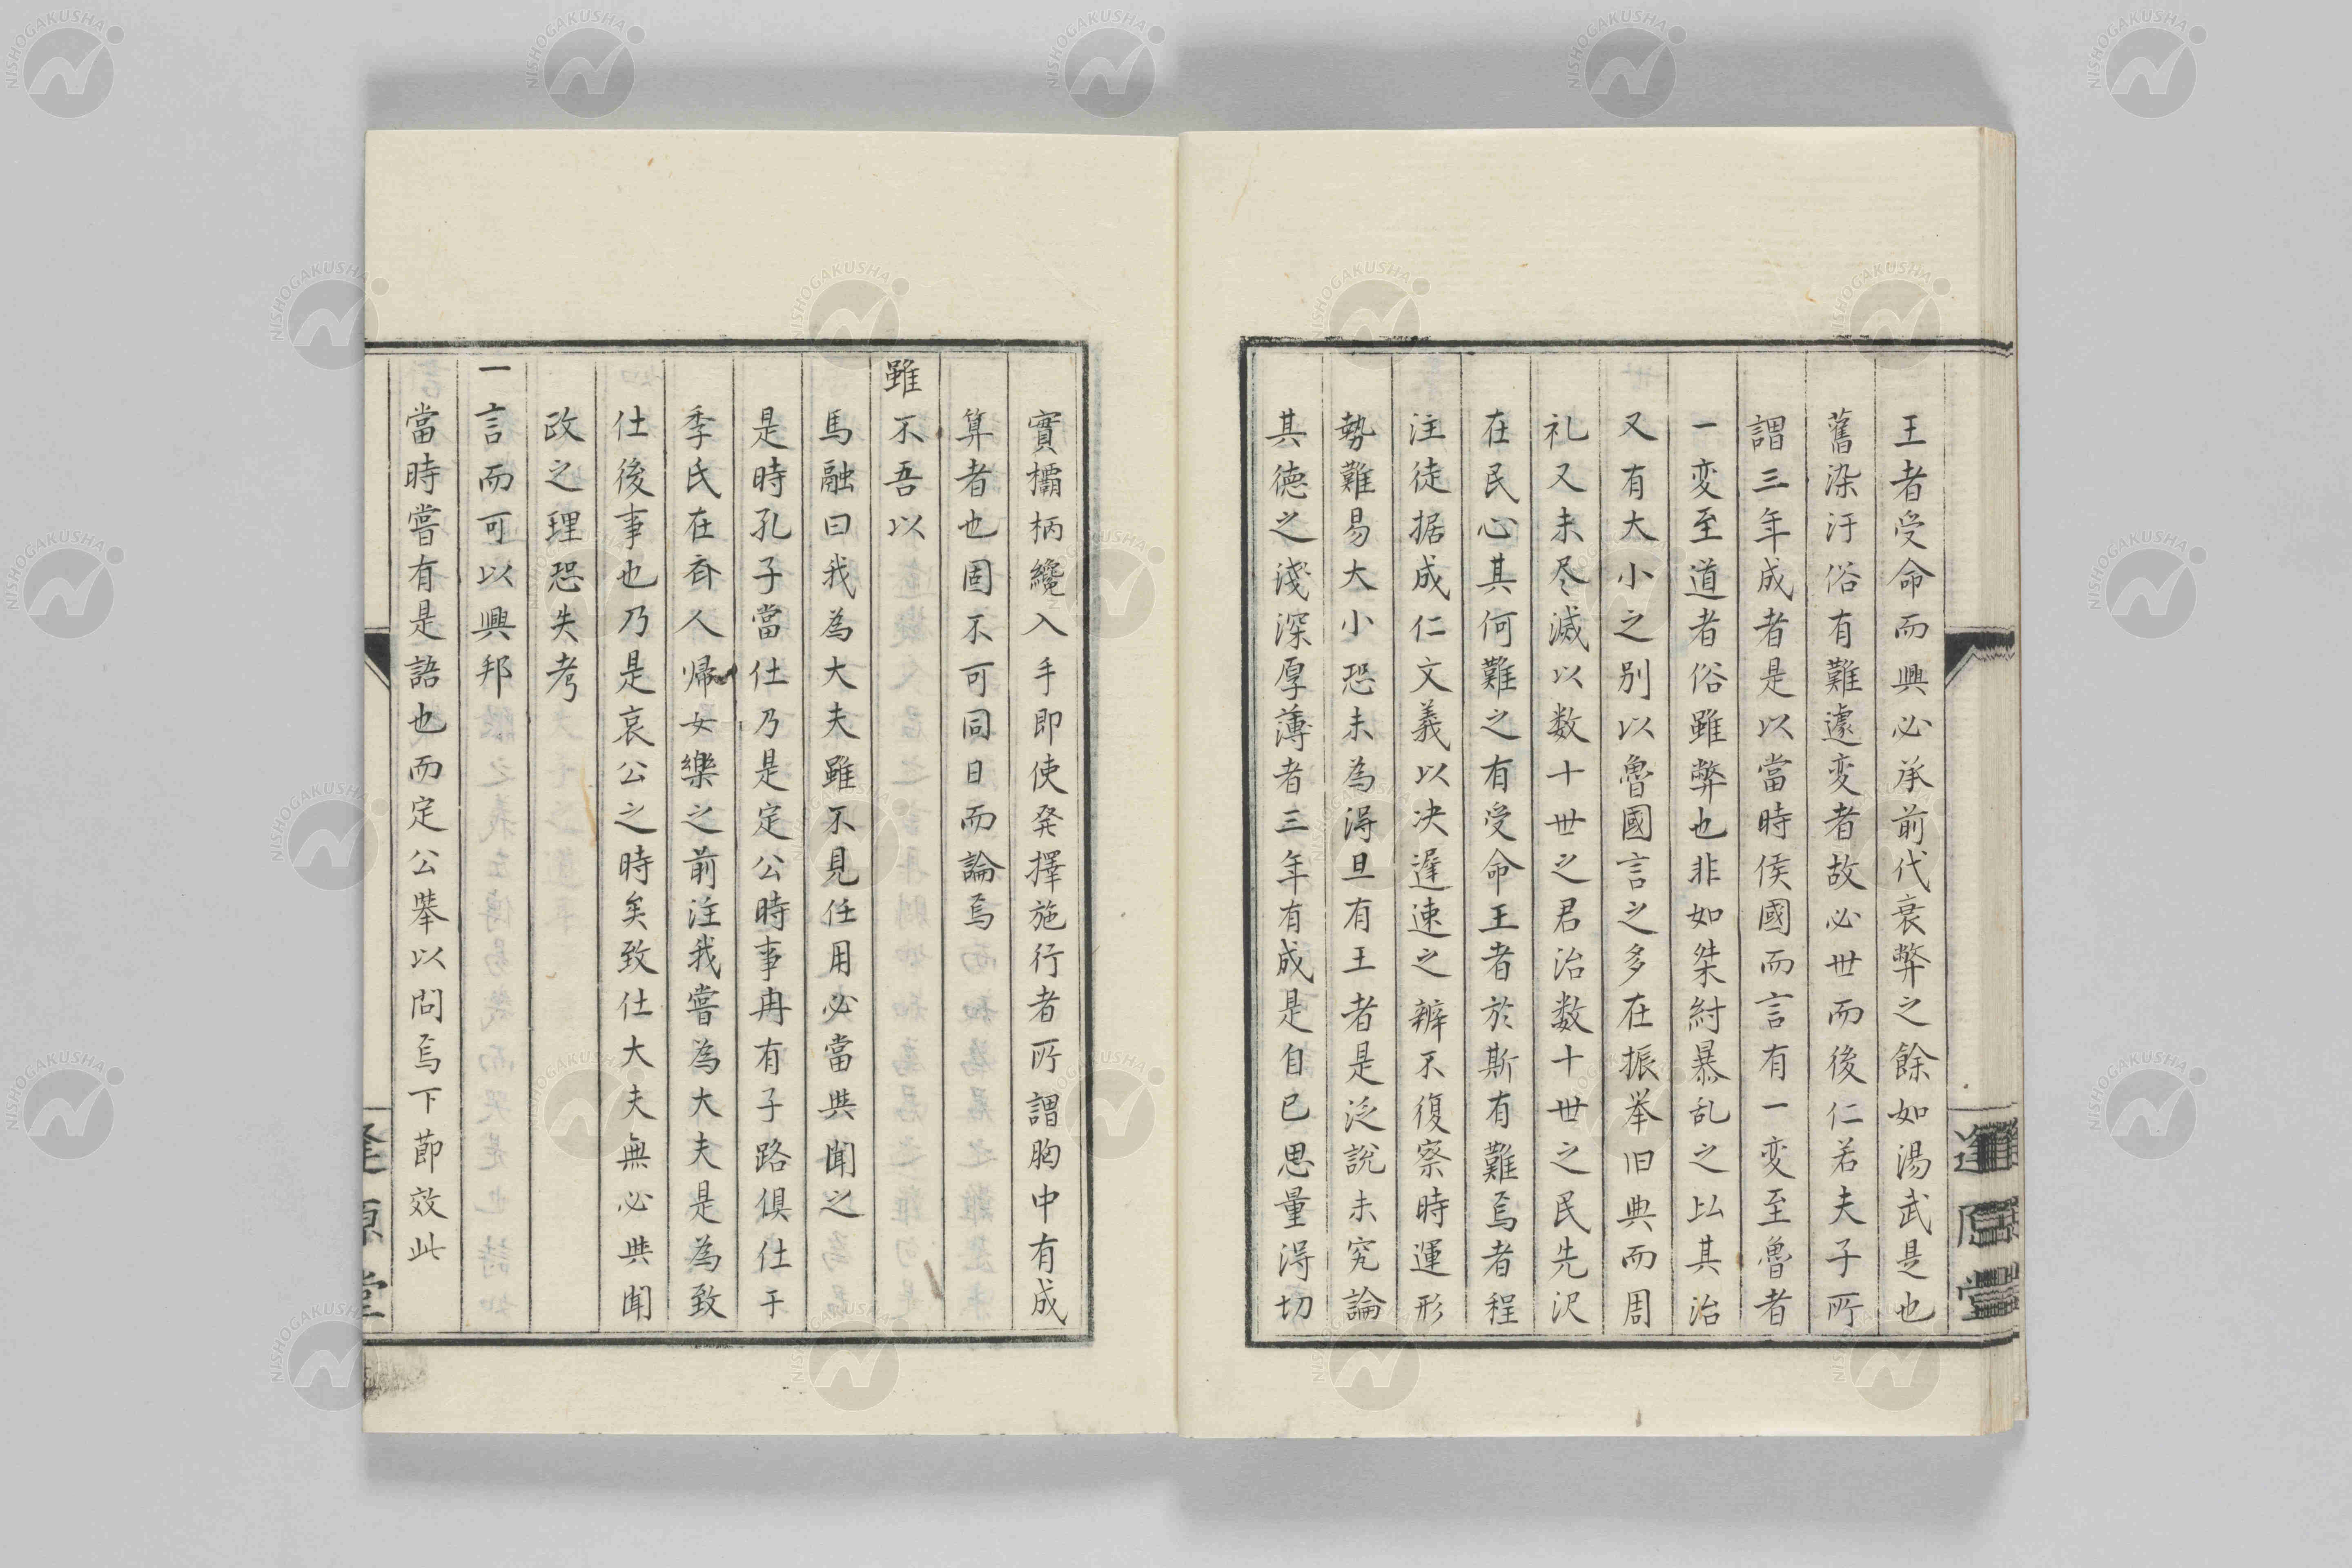 王者受命而興必承前代衰弊之餘如湯武是也
舊染汙俗有難遽変者故必世而後仁若夫子所
謂三年成者是以當時侯國而言有一変至魯者
一変至道者俗雖弊也非如桀紂暴乱之比其治
又有大小之別以魯國言之多在振举旧典而周
礼又未尽滅以数十世之君治数十世之民先沢
在民心其何難之有受命王者於斯有難焉者程
注徒据成仁文義以决遅速之辨不復察時運形
勢難易大小恐未為得且有王者是泛說未究論
其徳之淺深厚薄者三年有成是自已思量得切
實欛柄纔入手即使発擇施行者所謂胸中有成
算者也固不可同日而論焉
雖不吾以
馬融曰我為大夫雖不見任用必當與聞之
是時孔子當仕乃是定公時事冉有子路俱仕于
季氏在斉人帰女樂之前注我嘗為大夫是為致
仕後事也乃是哀公之時矣致仕大夫無必與聞
政之理恐失考
一言而可以興邦
當時嘗有是語也而定公擧以問焉下節效此
逢原堂
逢原堂
NISHOGAKUSHA